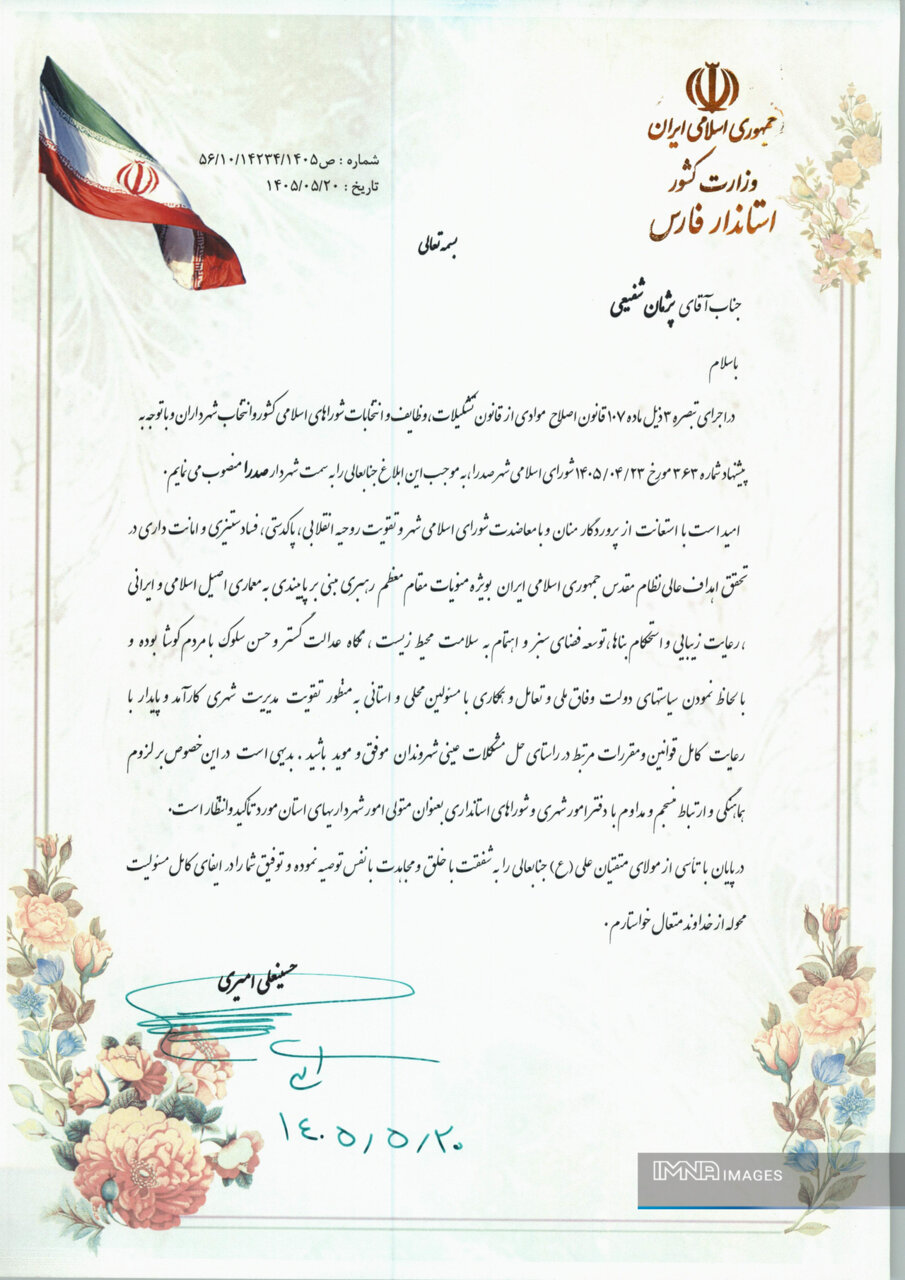 جمهوری اسلامی ایران
وزارت کشور
استاندار فارس
شماره : ص۵۶/۱۰/۱۴۲۳۴/۱۴۰۵
تاریخ : ۱۴۰۵/۰۵/۲۰
بسمه تعالی
جناب آقای پژمان شفیعی
باسلام
در اجرای تبصره ۳ ذیل ماده ۱۰۷ قانون اصلاح موادی از قانون تشکیلات، وظایف و انتخابات شوراهای اسلامی کشور و انتخاب شهرداران و با توجه به
پیشنهاد شماره ۳۶۳ مورخ ۱۴۰۵/۰۴/۲۳ شورای اسلامی شهر صدرا، به موجب این ابلاغ جنابعالی را به سمت شهردار صدرا منصوب می نمایم.
امید است با استعانت از پروردگار منان و با معاضدت شورای اسلامی شهر و تقویت روحیه انقلابی، پاکدستی، فساد ستیزی و امانت داری در
تحقق اهداف عالی نظام مقدس جمهوری اسلامی ایران بویژه منویات مقام معظم رهبری مبنی بر پایبندی به معماری اصیل اسلامی و ایرانی
، رعایت زیبایی و استحکام بناها، توسعه فضای سبز و اهتمام به سلامت محیط زیست ، نگاه عدالت گستر و حسن سلوک با مردم کوشا بوده و
با لحاظ نمودن سیاستهای دولت وفاق ملی و تعامل و همکاری با مسئولین محلی و استانی به منظور تقویت مدیریت شهری کارآمد و پایدار با
رعایت کامل قوانین و مقررات مرتبط در راستای حل مشکلات عینی شهروندان موفق و موید باشید . بدیهی است در این خصوص بر لزوم
هماهنگی و ارتباط منسجم و مداوم با دفتر امور شهری و شوراهای استانداری بعنوان متولی امور شهرداریهای استان مورد تاکید و انتظار است.
در پایان با تأسی از مولای متقیان علی (ع) جنابعالی را به شفقت با خلق و مجاهدت با نفس توصیه نموده و توفیق شما را در ایفای کامل مسئولیت
محوله از خداوند متعال خواستارم .
حسینعلی امیری
۱۴۰۵/۵/۲۰
IMNA IMAGES